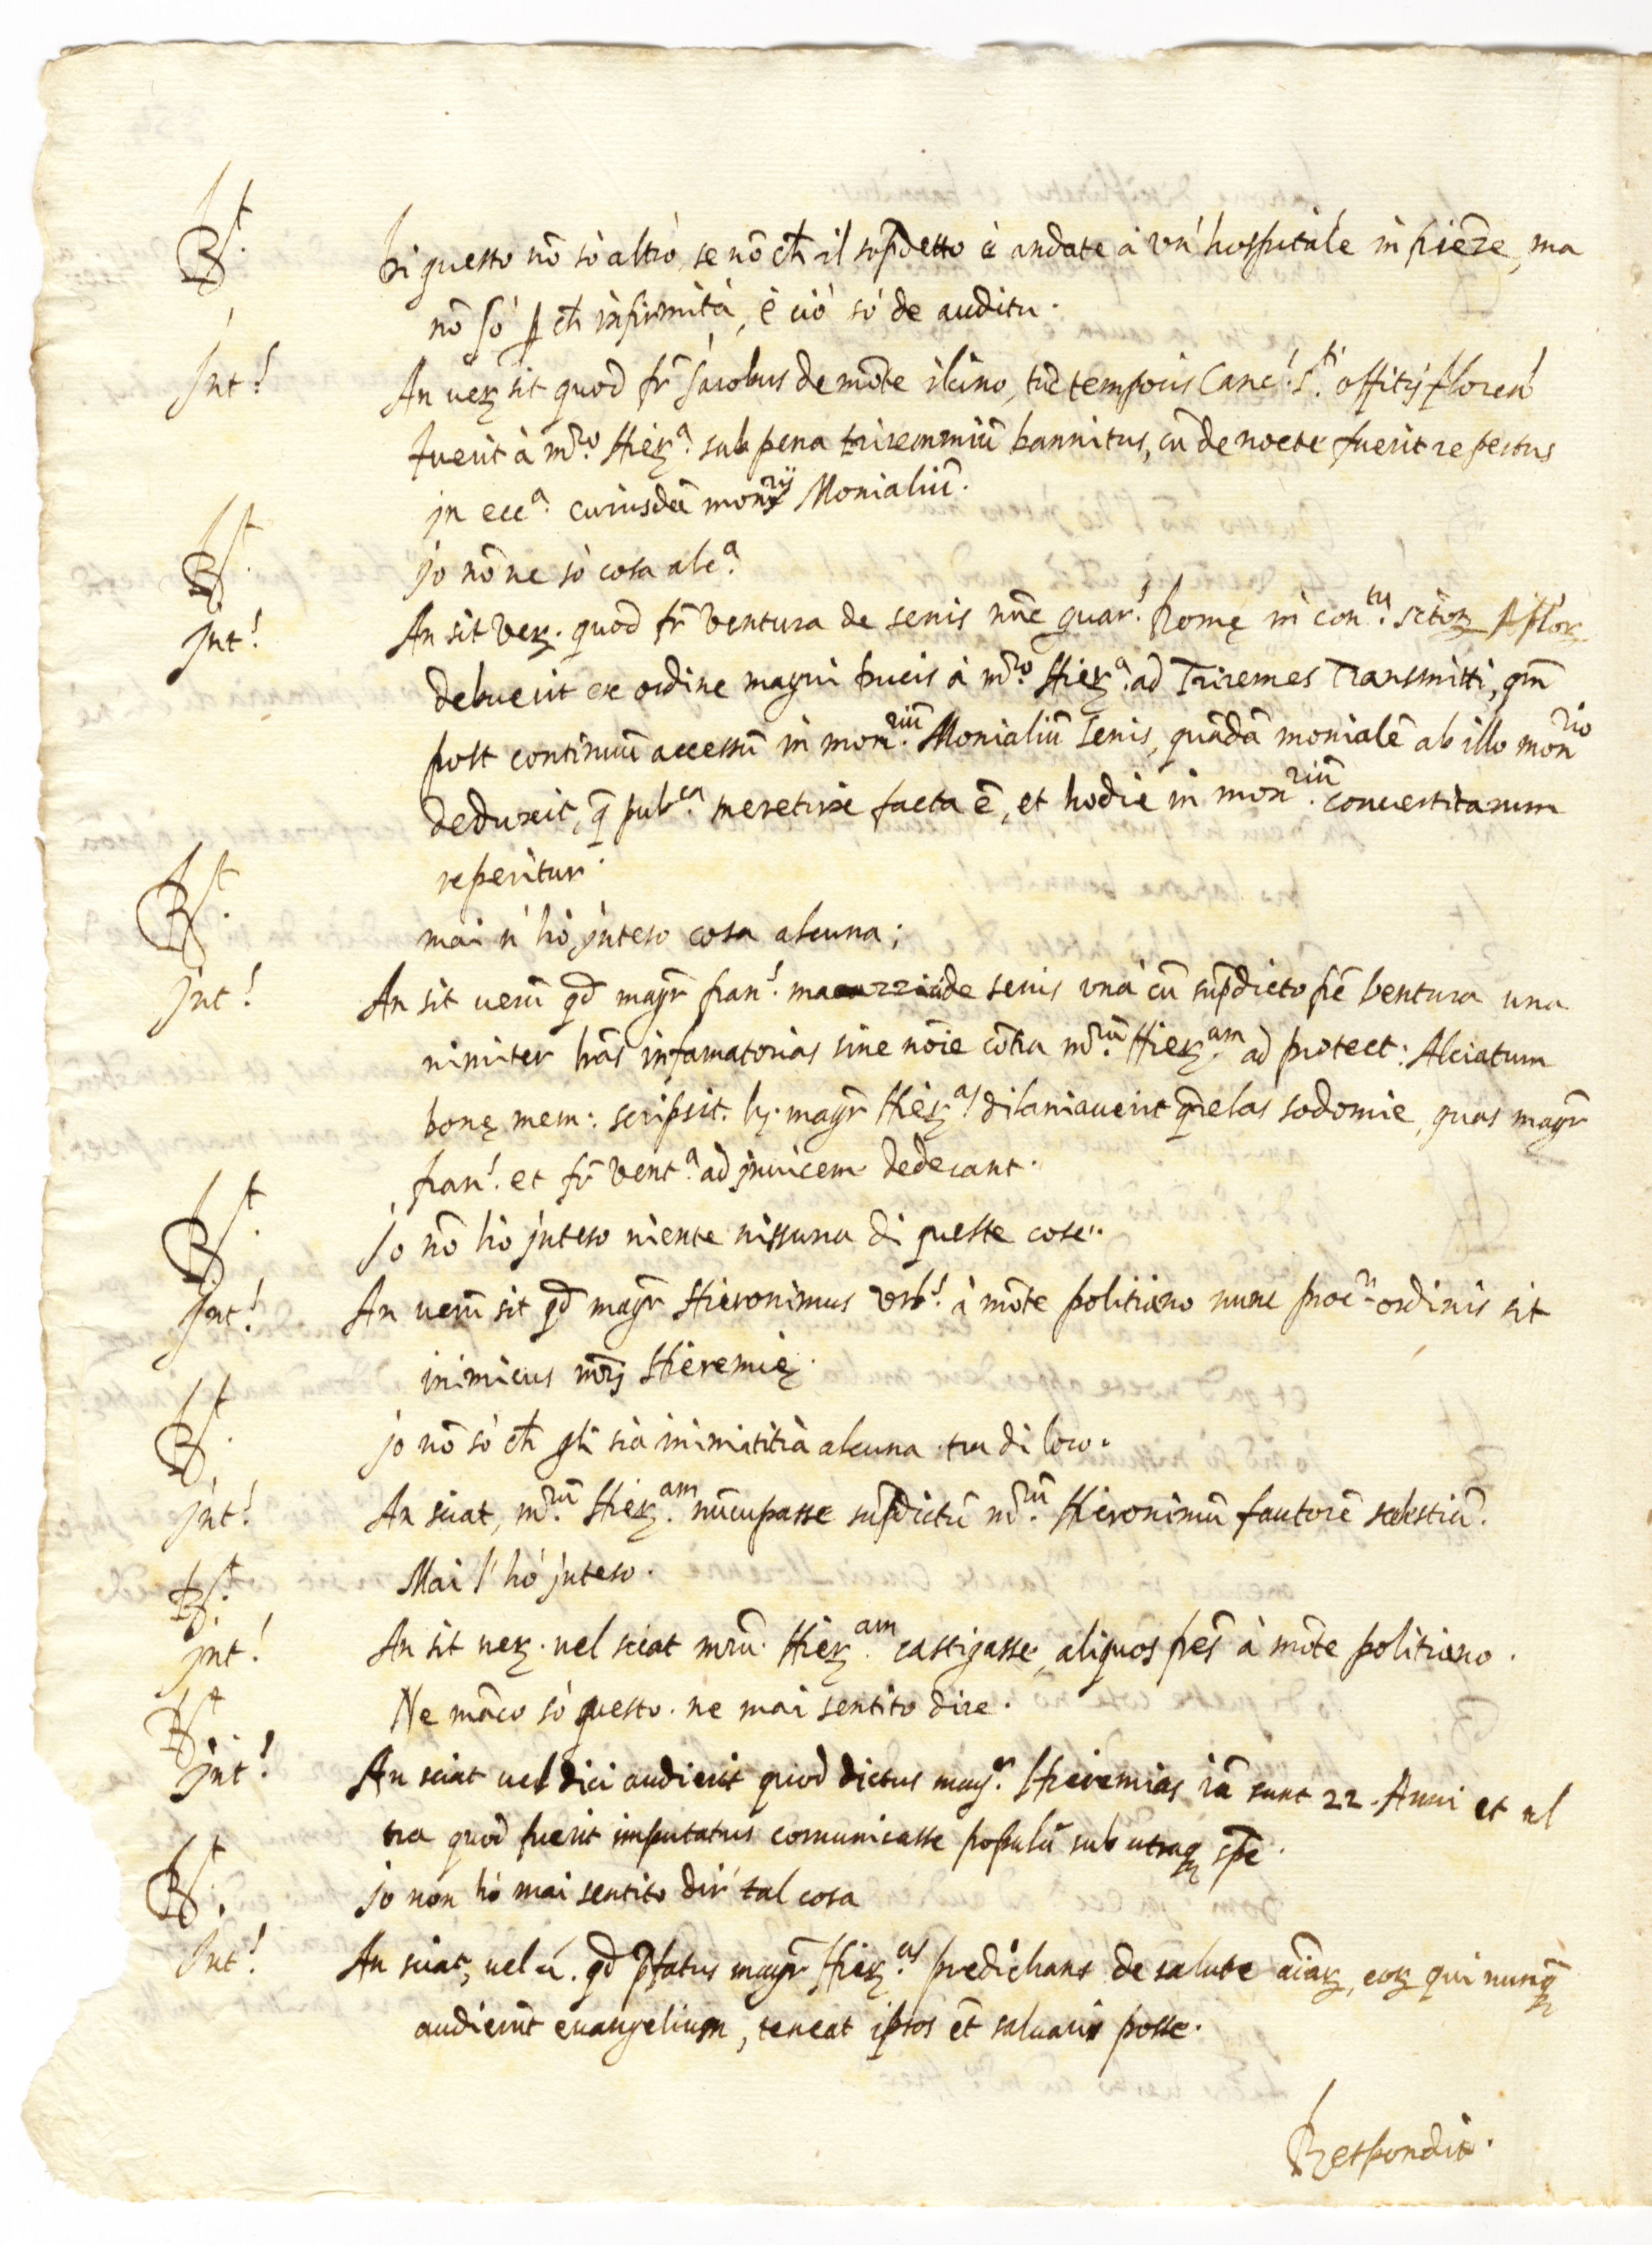 R.t Di questo nō sò altro, se nō ch̄ il sop̄detto è andato à un' hospitale in firēze, ma
nō sò p ch̄ infirmità, è ciò sò de auditu.
Int.' An verꝝ sit quod fr̄ Jacobus de mōte ilcino, tūc temporis Canc.' S.ti offitij floren'
fuerit à m̄ro. Hierꝝ.a sub pena triremmiū bannitus, cū de nocte fuerit repertus
in ecc.a cuiusdā monrij Monialiū.
R.t Jo nō ne sò cosa alc.a
Int.' An sit verꝝ. quod fr̄ Ventura de senis nūc guar.' Romę in con.tu sc̄torꝝ
debuerit ex ordine magni Ducis à m̄ro. Hierꝝ.a ad Triremes Transmitti, qm̄
post continuū accessū in mon.riū Monialiū senis, quādā monialē ab illo monrio
deduxit, q̄ pub.ca meretrix facta ē, et hodie in mon.riū conuertitarum
reperitur.
R.t mai n' hò inteso cosa alcuna;
Int.' An sit uerū qd̄ magr̄ fran.' de senis unà cū sup̄dicto frē bentura una
nimiter l̄ras infamatorias sine nōie cōtra m̄.rū Hierꝝ.am ad protect: Alciatum
bonę mem: scripsit. magr̄ Hierꝝ.as dilaniauerit q̄relas sodomie, quas magr̄
fran.' et fr̄ Vent.a ad inuicem dederant.
R.t Jo nō hò inteso niente nissuna di queste cose.
Int.' An uerū sit qd̄ magr̄ Hieronimus à mōte politiano nunc proc.r ordinis sit
inimicus mr̄i Hieremię.
R.t Jo nō sò ch̄ gli sia inimicitia alcuna tra di loro.
Int.' An sciat, m̄.rū Hierꝝ.am nūcupasse sup̄dictū m̄.rū Hieronimū fautorē scelestiū.
R.t Mai l' hò inteso.
Int.' An sit uerꝝ. uel sciat mr̄ū. Hierꝝ.am castigasse, aliquos frēs à mōte politiano.
R.t Ne māco sò questo. ne mai sentito dire.
Int.' An sciat uel dici audierit quod dictus mag.r Hieremias iā sunt 22. Anni et ul
tra quod fuerit imputatus comunicasse populū sub utraqꝫ sp̄e.
R.t Jo non hò mai sentito dir' tal cosa
Int.' An sciat, uel qd̄ p̄fatus magr̄ Hierꝝ.as predichans de salute aīarꝝ, eorꝝ qui nunq̄
audierūt euangelium, teneat ipsos ēt saluari posse.
Respondit.